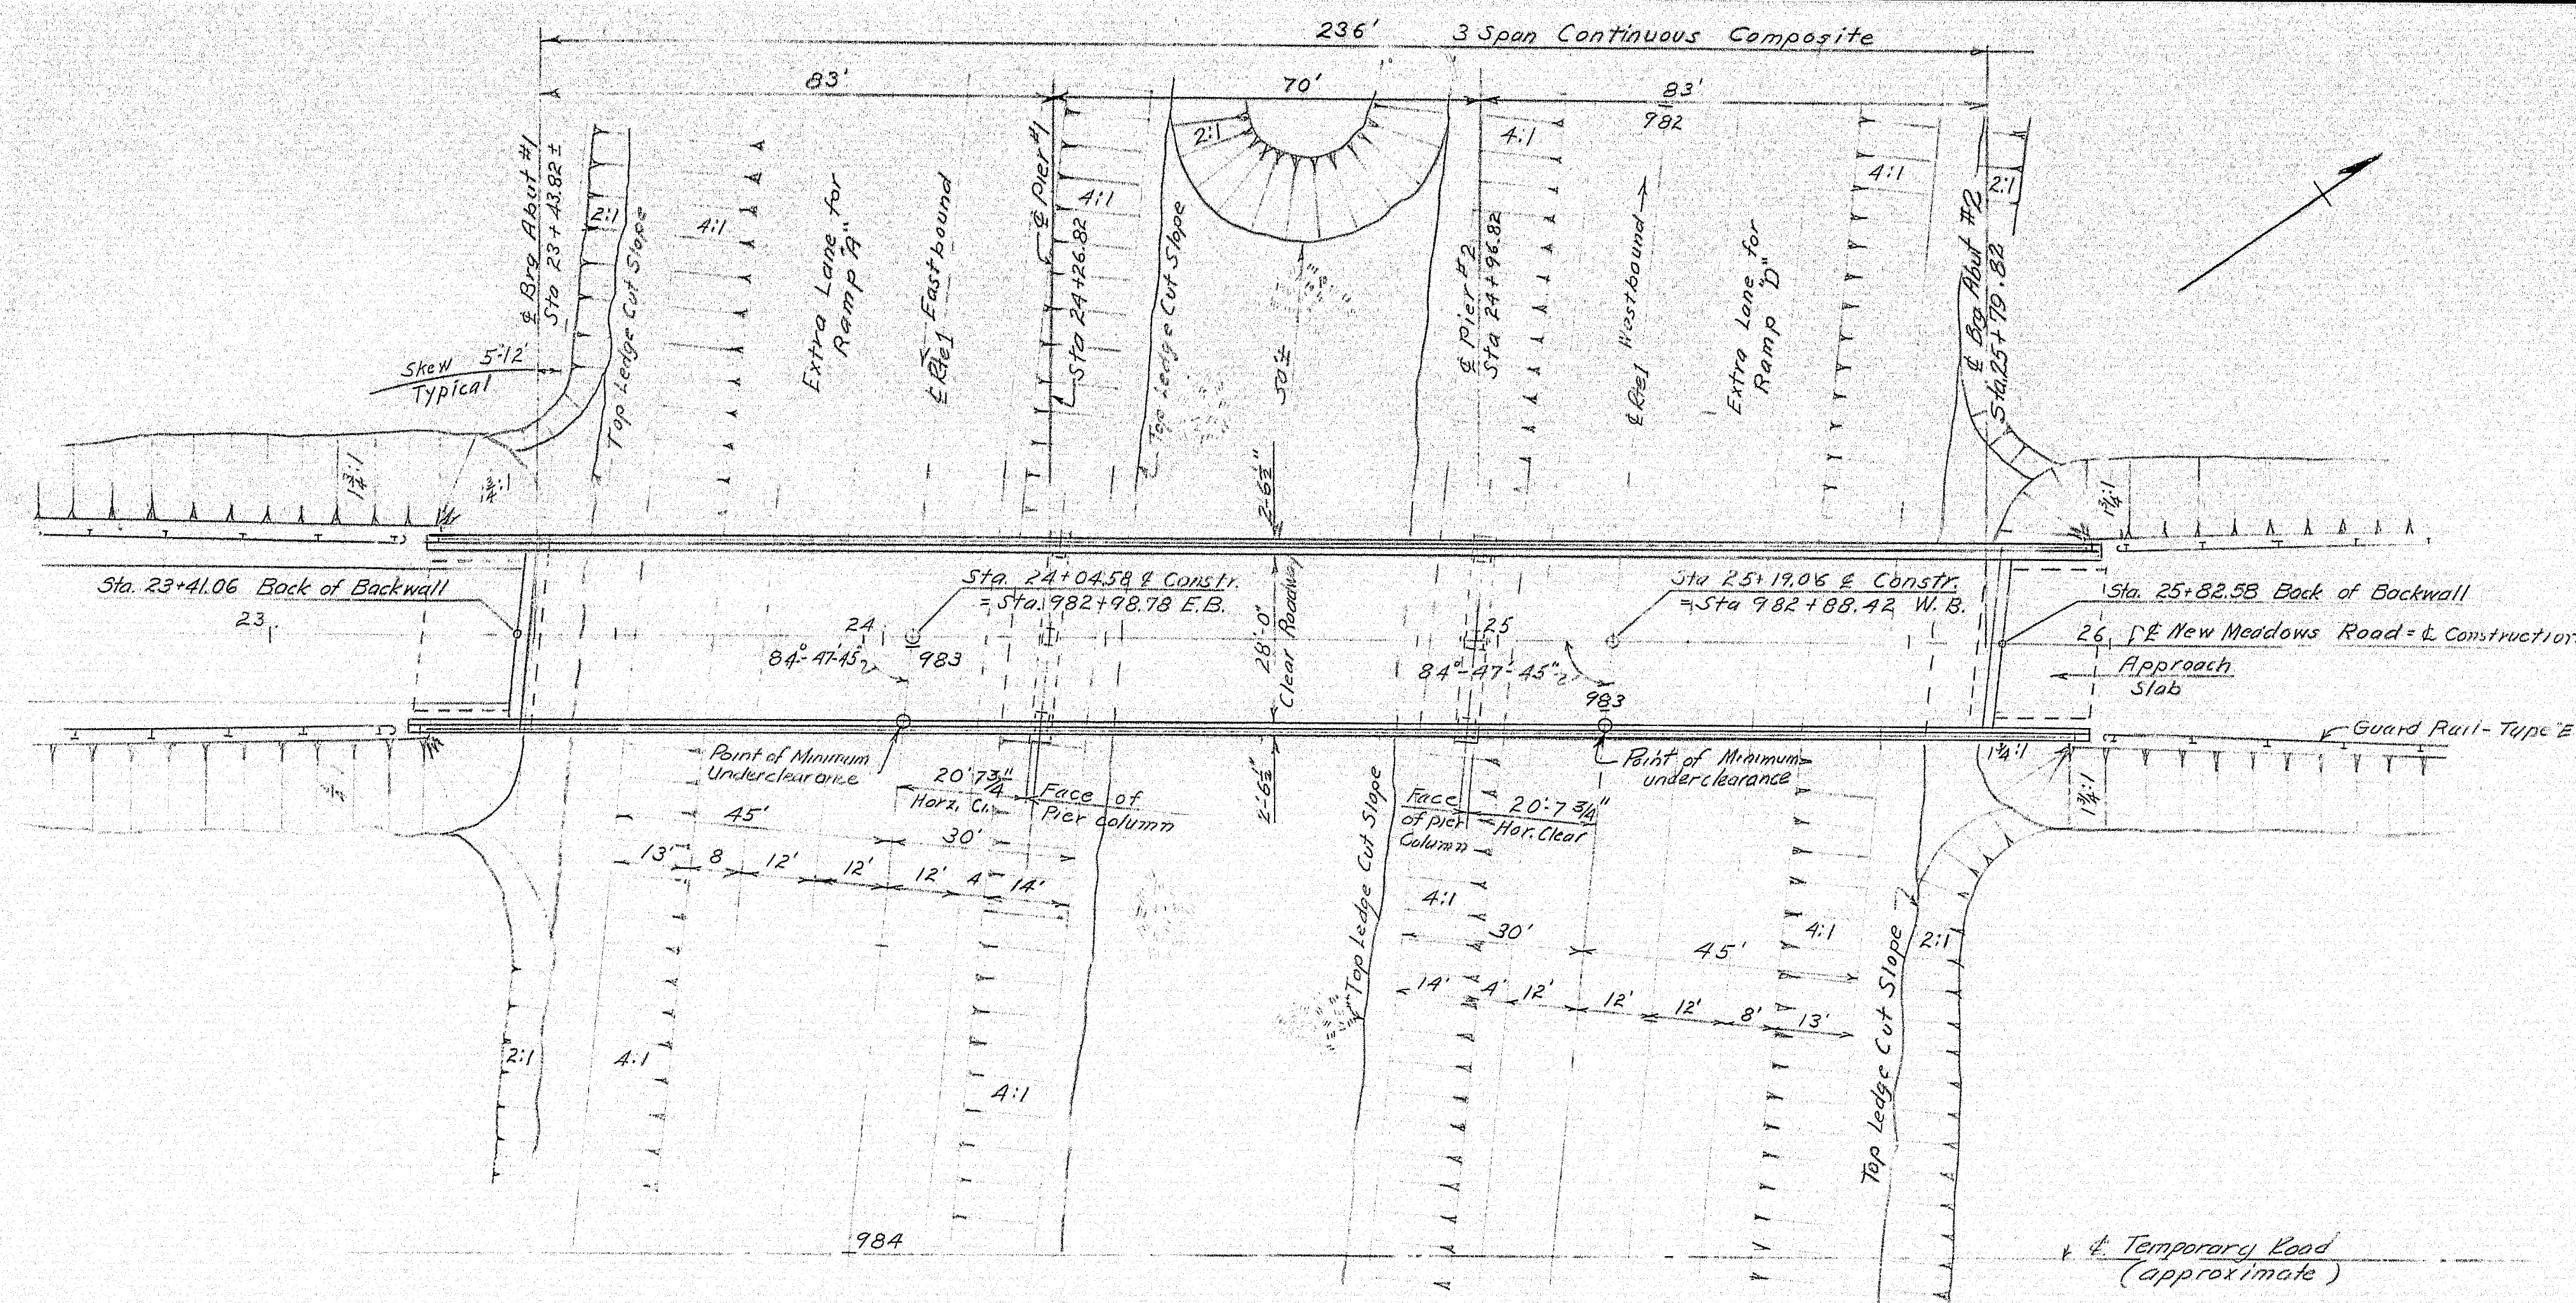 236' 3 Span Continuous Composite
83'
70'
83'
982
℄ Brg Abut #1
Sta 23+43.82 ±
2:1
Top Ledge Cut Slope
4:1
Extra Lane for
Ramp "A"
℄ Rte 1 Eastbound
℄ Pier #1
Sta 24+26.82
4:1
Top Ledge Cut Slope
2:1
50'±
℄ Pier #2
Sta 24+96.82
4:1
℄ Rte 1 Westbound
Extra Lane for
Ramp "D"
4:1
℄ Brg Abut #2
Sta. 25+79.82
2:1
Skew 5°12'
Typical
1¾:1
1¾:1
2'-6½"
1¾:1
Sta. 23+41.06 Back of Backwall
23
Sta. 24+04.58 ℄ Constr.
= Sta. 982+98.78 E.B.
24
84°-47'-45"
983
28'-0"
Clear Roadway
Sta 25+19.06 ℄ Constr.
= Sta 982+88.42 W.B.
25
84°-47'-45"
983
Sta. 25+82.58 Back of Backwall
26 ℄ New Meadows Road = ℄ Construction
Approach
Slab
Guard Rail-Type "E
Point of Minimum
Underclearance
20'7¾"
Horz. Cl.
Face of
Pier Column
2'-6½"
Top Ledge Cut Slope
Face
of pier
Column
20'-7 3/4"
Hor. Clear
Point of Minimum
underclearance
1¾:1
1¾:1
45'
30'
13' 8 12' 12' 12' 4 14'
4:1
30'
45'
4:1
2:1
14' 4' 12' 12' 12' 8' 13'
Top Ledge Cut Slope
2:1
4:1
4:1
984
℄ Temporary Road
(approximate)